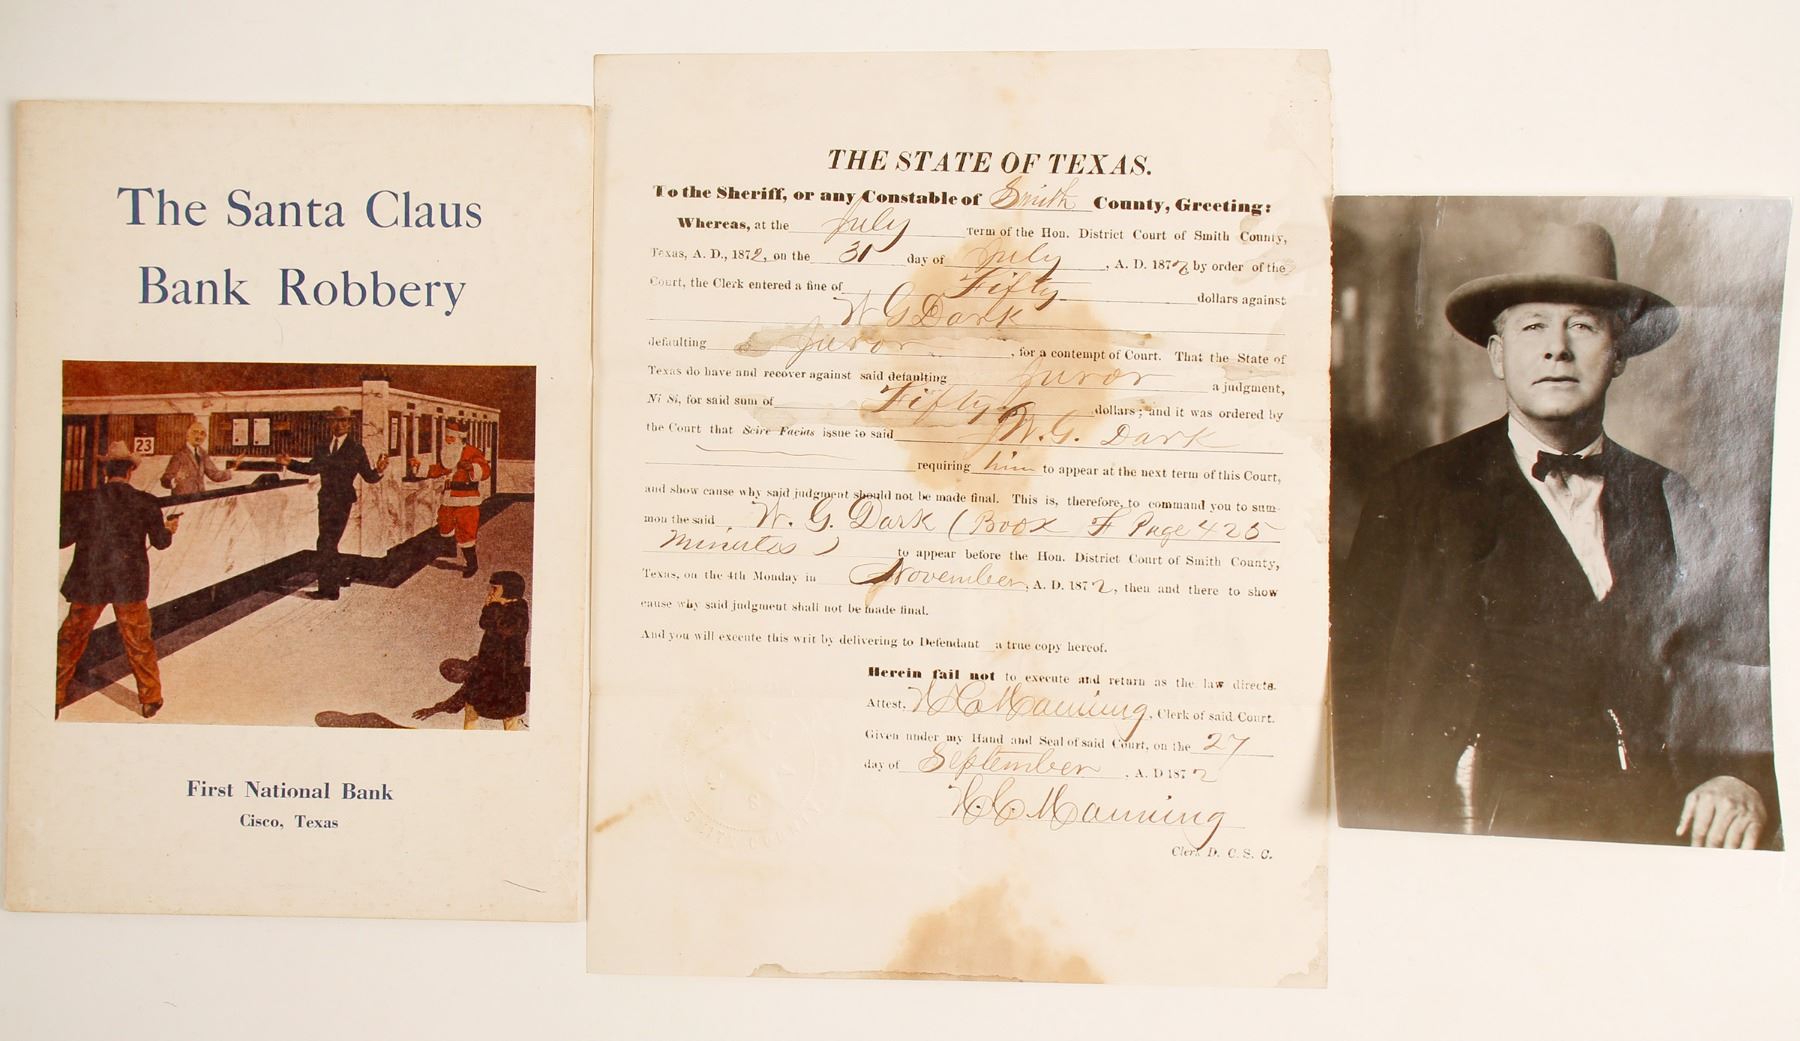 The Santa Claus
Bank Robbery
23
First National Bank
Cisco, Texas
THE STATE OF TEXAS.
To the Sheriff, or any Constable of Smith County, Greeting:
Whereas, at the July Term of the Hon. District Court of Smith County,
Texas, A. D., 1872, on the 31 day of July, A. D. 1872 by order of the
Court, the Clerk entered a fine of Fifty dollars against
W G Dark
defaulting Juror, for a contempt of Court. That the State of
Texas do have and recover against said defaulting Juror a judgment,
Ni Si, for said sum of Fifty dollars; and it was ordered by
the Court that Scire Facias issue to said W. G. Dark
requiring him to appear at the next term of this Court,
and show cause why said judgment should not be made final. This is, therefore, to command you to sum-
mon the said W. G. Dark (Book F Page 425
Minutes) to appear before the Hon. District Court of Smith County,
Texas, on the 4th Monday in November, A. D. 1872, then and there to show
cause why said judgment shall not be made final.
And you will execute this writ by delivering to Defendant a true copy hereof.
Herein fail not to execute and return as the law directs.
Attest, Manning, Clerk of said Court.
Given under my Hand and Seal of said Court, on the 27
day of September, A. D 1872
Manning
Clerk D. C. S. C.